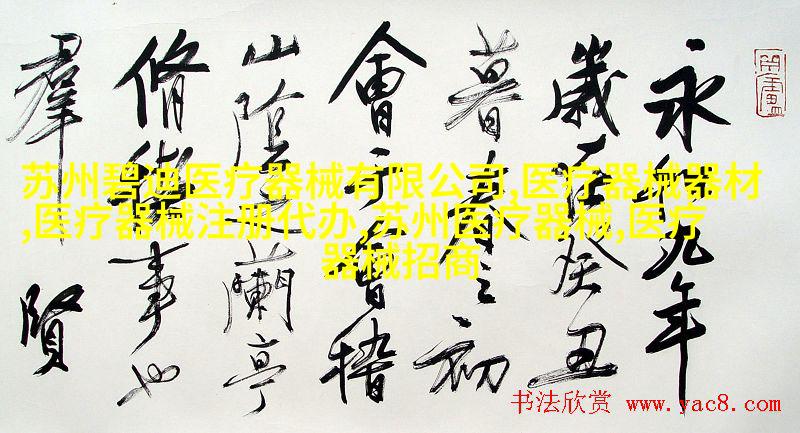 永和九年
歲在癸丑
暮春之初
會于會稽
山陰之蘭亭
脩禊事也
羣賢
苏州碧迪医疗器械有限公司,医疗器械器材
,医疗器械注册代办,苏州医疗器械,医疗
器械招商
书法欣赏 www.yac8.com